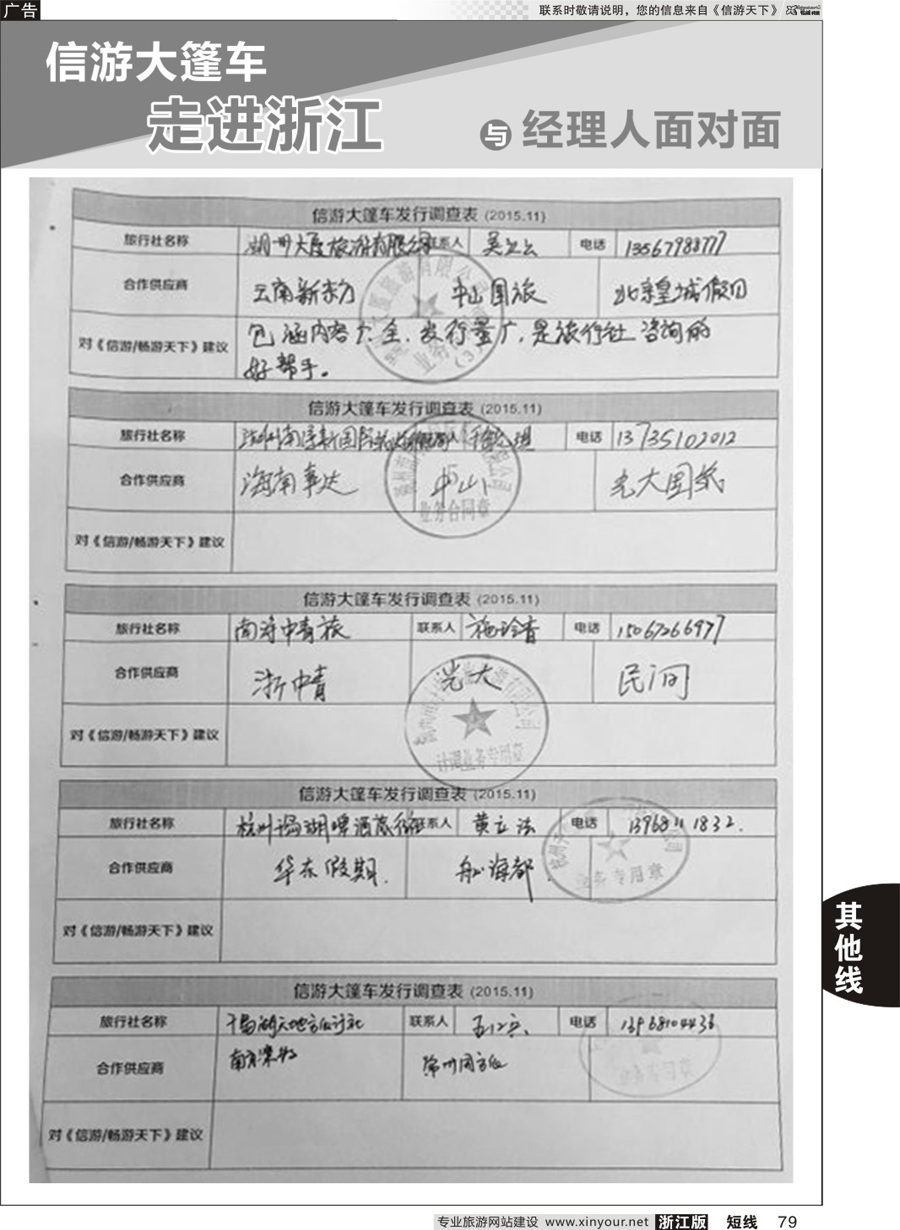 广告
联系时敬请说明，您的信息来自《信游天下》
信游大篷车
走进浙江
与 经理人面对面
信游大篷车发行调查表 (2015.11)
旅行社名称 湖州大厦旅游有限公司 联系人 吴立云 电话 13567988777
合作供应商 云南新东方 中山国旅 北京皇城假日
对《信游/畅游天下》建议 包涵内容广、全，发行量广，是旅行社咨询的
好帮手。
信游大篷车发行调查表 (2015.11)
旅行社名称 电话 13735102012
合作供应商 海南事达 中山 光大国旅
业务合同章
对《信游/畅游天下》建议
信游大篷车发行调查表 (2015.11)
旅行社名称 南浔中青旅 联系人 电话 15067266977
合作供应商 浙中青 光大 民间
对《信游/畅游天下》建议
计调业务专用章
信游大篷车发行调查表 (2015.11)
旅行社名称 联系人 黄立法 电话
合作供应商 华东假期
业务专用章
对《信游/畅游天下》建议
信游大篷车发行调查表 (2015.11)
旅行社名称 联系人 电话 13968104436
合作供应商
对《信游/畅游天下》建议
其他线
专业旅游网站建设 www.xinyour.net 浙江版 短线 79